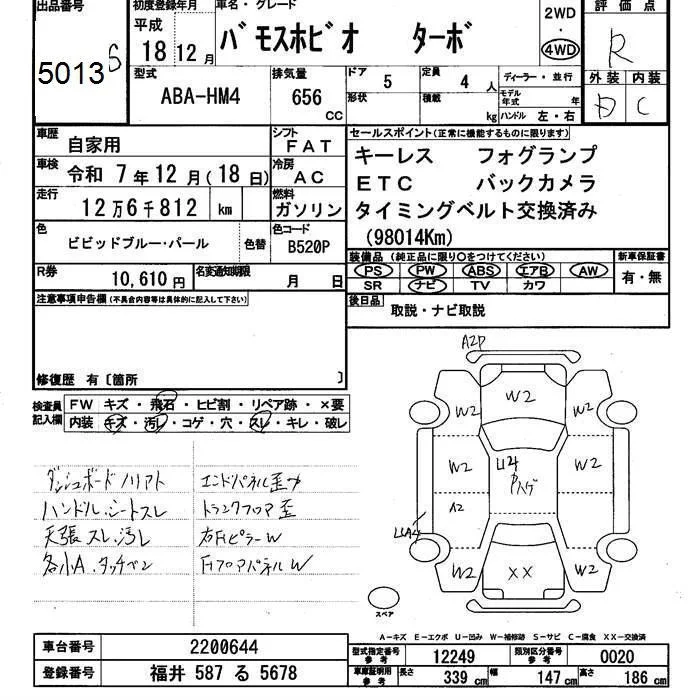 出品番号
5013 S
初度登録年月
平成
18 12月
車名・グレード
バモスホビオ ターボ
2WD
・
4WD
評価点
R
型式
ABA-HM4
排気量
656
CC
ドア
5
形状
定員
4 人
積載
kg
ディーラー・並行
モデル年式 年
ハンドル 左・右
外装 内装
C
車歴
自家用
シフト
FAT
車検
令和 7年12月(18日)
冷房
AC
走行
12万6千812 km
燃料
ガソリン
色
ビビッドブルー・パール
色替
色コード
B520P
R券
10,610円
名変通知期限
月 日
セールスポイント(正常に機能するものに限ります)
キーレス フォグランプ
ETC バックカメラ
タイミングベルト交換済み
(98014Km)
装備品(純正品に限り○をつけてください)
PS PW ABS エアB AW
SR ナビ TV カワ
新車保証書
有・無
後日品
取説・ナビ取説
注意事項申告欄(不具合内容等は具体的に記入して下さい)
修復歴 有〔箇所 〕
検査員
記入欄
FW キズ・飛石・ヒビ割・リペア跡・×要
内装 キズ・汚レ・コゲ・穴・スレ・キレ・破レ
ダッシュボードノリアト
ハンドル.シートスレ
天張スレ.汚レ
各小A.タッチペン
エンドパネル歪み
トランクフロア歪
右FピラーW
FフロアパネルW
A2P
W2
W2 W2
W2 U4 W2
A2
W2
W2 XX W2
スペア
A-キズ E-エクボ U-凹み W-補修跡 S-サビ C-腐食 XX-交換済
車台番号
2200644
登録番号
福井 587 る 5678
型式指定番号
参考
12249
類別区分番号
参考
0020
車庫証明用
参考
長さ
339 cm
幅
147 cm
高さ
186 cm